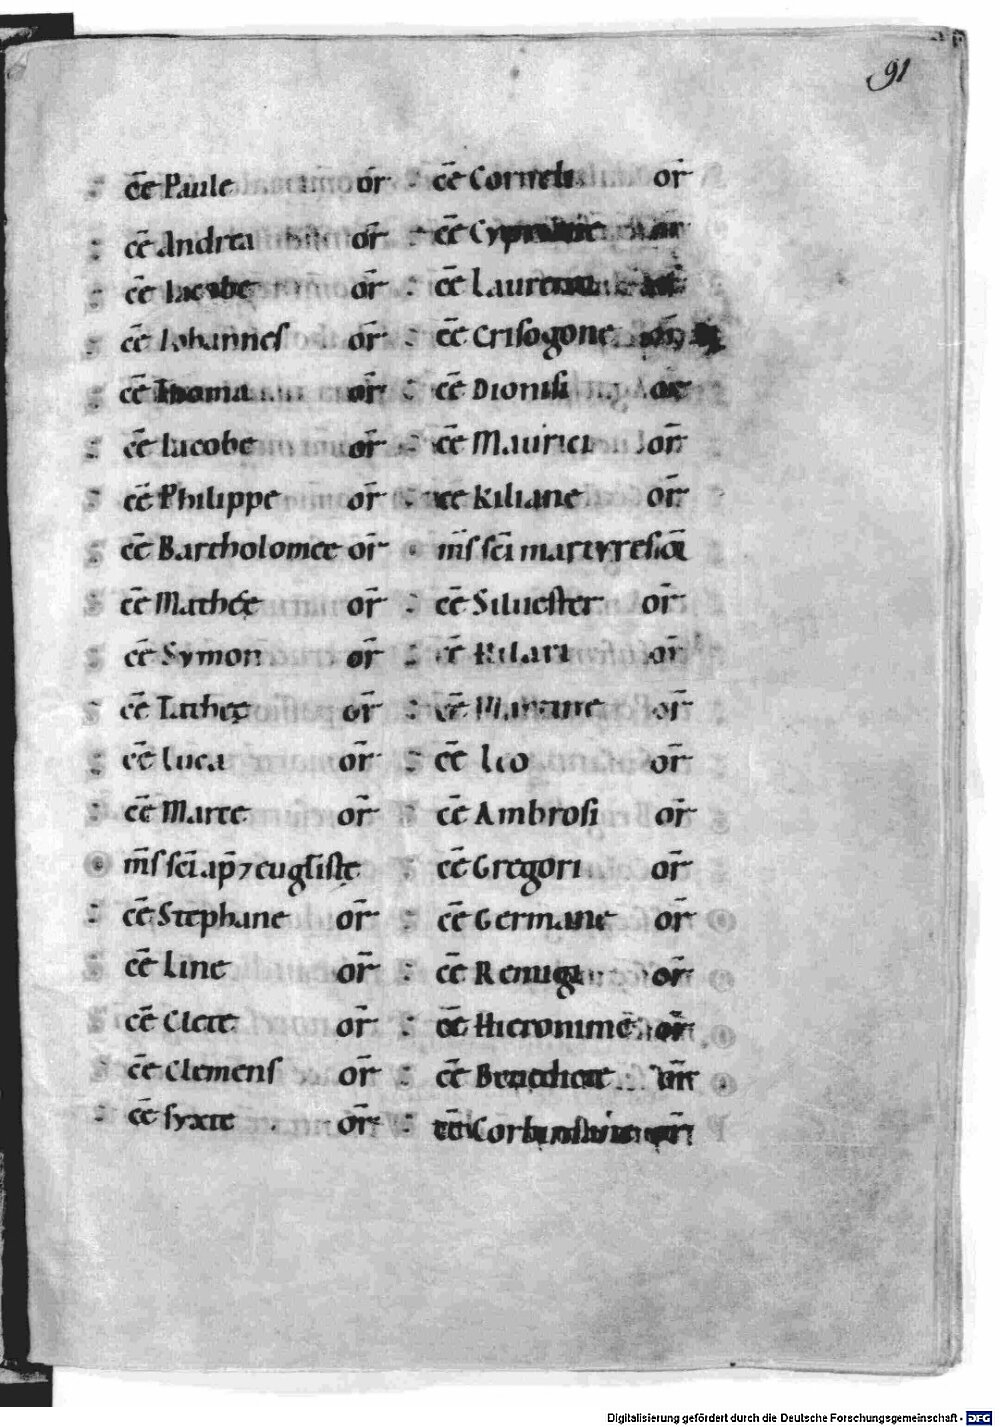 91
cē Paule or̄
cē Andrea or̄
cē Iacobe or̄
cē Iohanneſ or̄
cē Thoma or̄
cē Iacobe or̄
cē Philippe or̄
cē Bartholomee or̄
cē Mathęe or̄
cē Symon or̄
cē Tathee or̄
cē Luca or̄
cē Marce or̄
om̄ſ ſc̄i ap̄ ⁊ eugl̄iſtę
cē Stephane or̄
cē Line or̄
cē Clete or̄
cē Clemenſ or̄
cē ſyxte or̄
cē Corneli or̄
cē Cypriane or̄
cē Laurenti
cē Criſogone or̄
cē Dioniſi or̄
cē Maurici or̄
cē Kiliane or̄
om̄ſ ſc̄i martyreſ
cē Silueſter or̄
cē Hilari or̄
cē Martine or̄
cē Leo or̄
cē Ambroſi or̄
cē Gregori or̄
cē Germane or̄
cē Remigi or̄
cē Hieronime or̄
cē Benedicte or̄
cē Corbiniane or̄
Digitalisierung gefördert durch die Deutsche Forschungsgemeinschaft - DFG